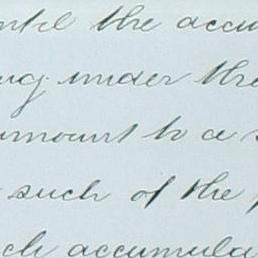 until the accu
ing under the
amount to a s
such of the
ch accumula